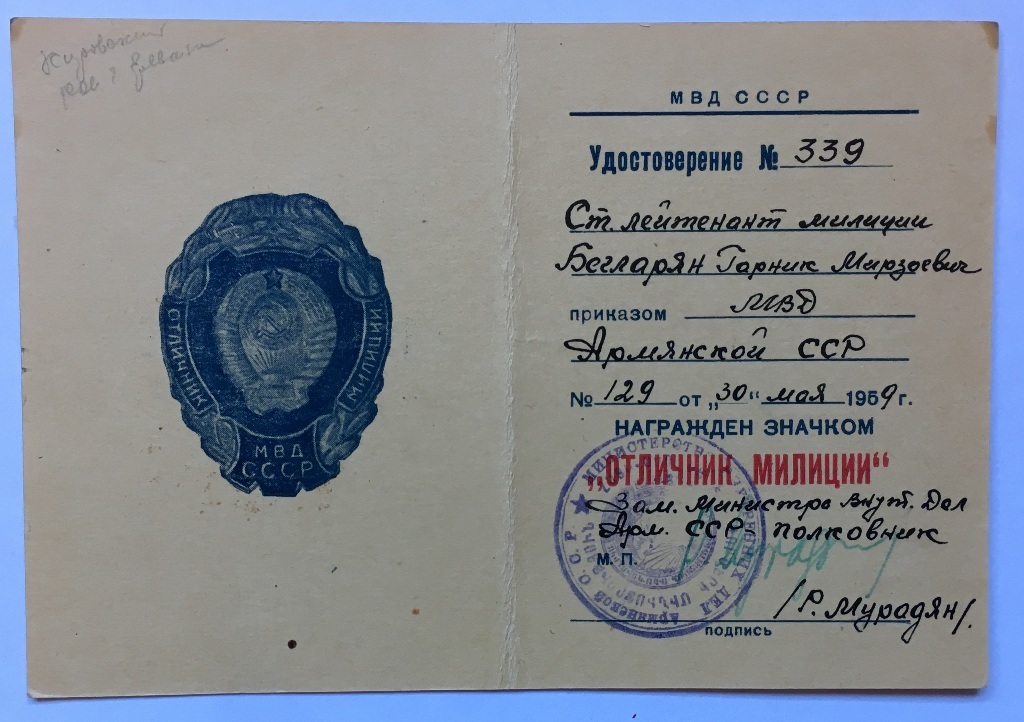 ОТЛИЧНИК МИЛИЦИИ
МВД
СССР
МВД СССР
Удостоверение № 339
Ст. лейтенант милиции
Бегларян Гарник Мирзоевич
приказом МВД
Армянской ССР
№ 129 от „30“ мая 1959 г.
НАГРАЖДЕН ЗНАЧКОМ
„ОТЛИЧНИК МИЛИЦИИ“
Зам. Министра Внут. Дел
Арм. ССР - полковник
М. П.
/Р. Мурадян/.
подпись